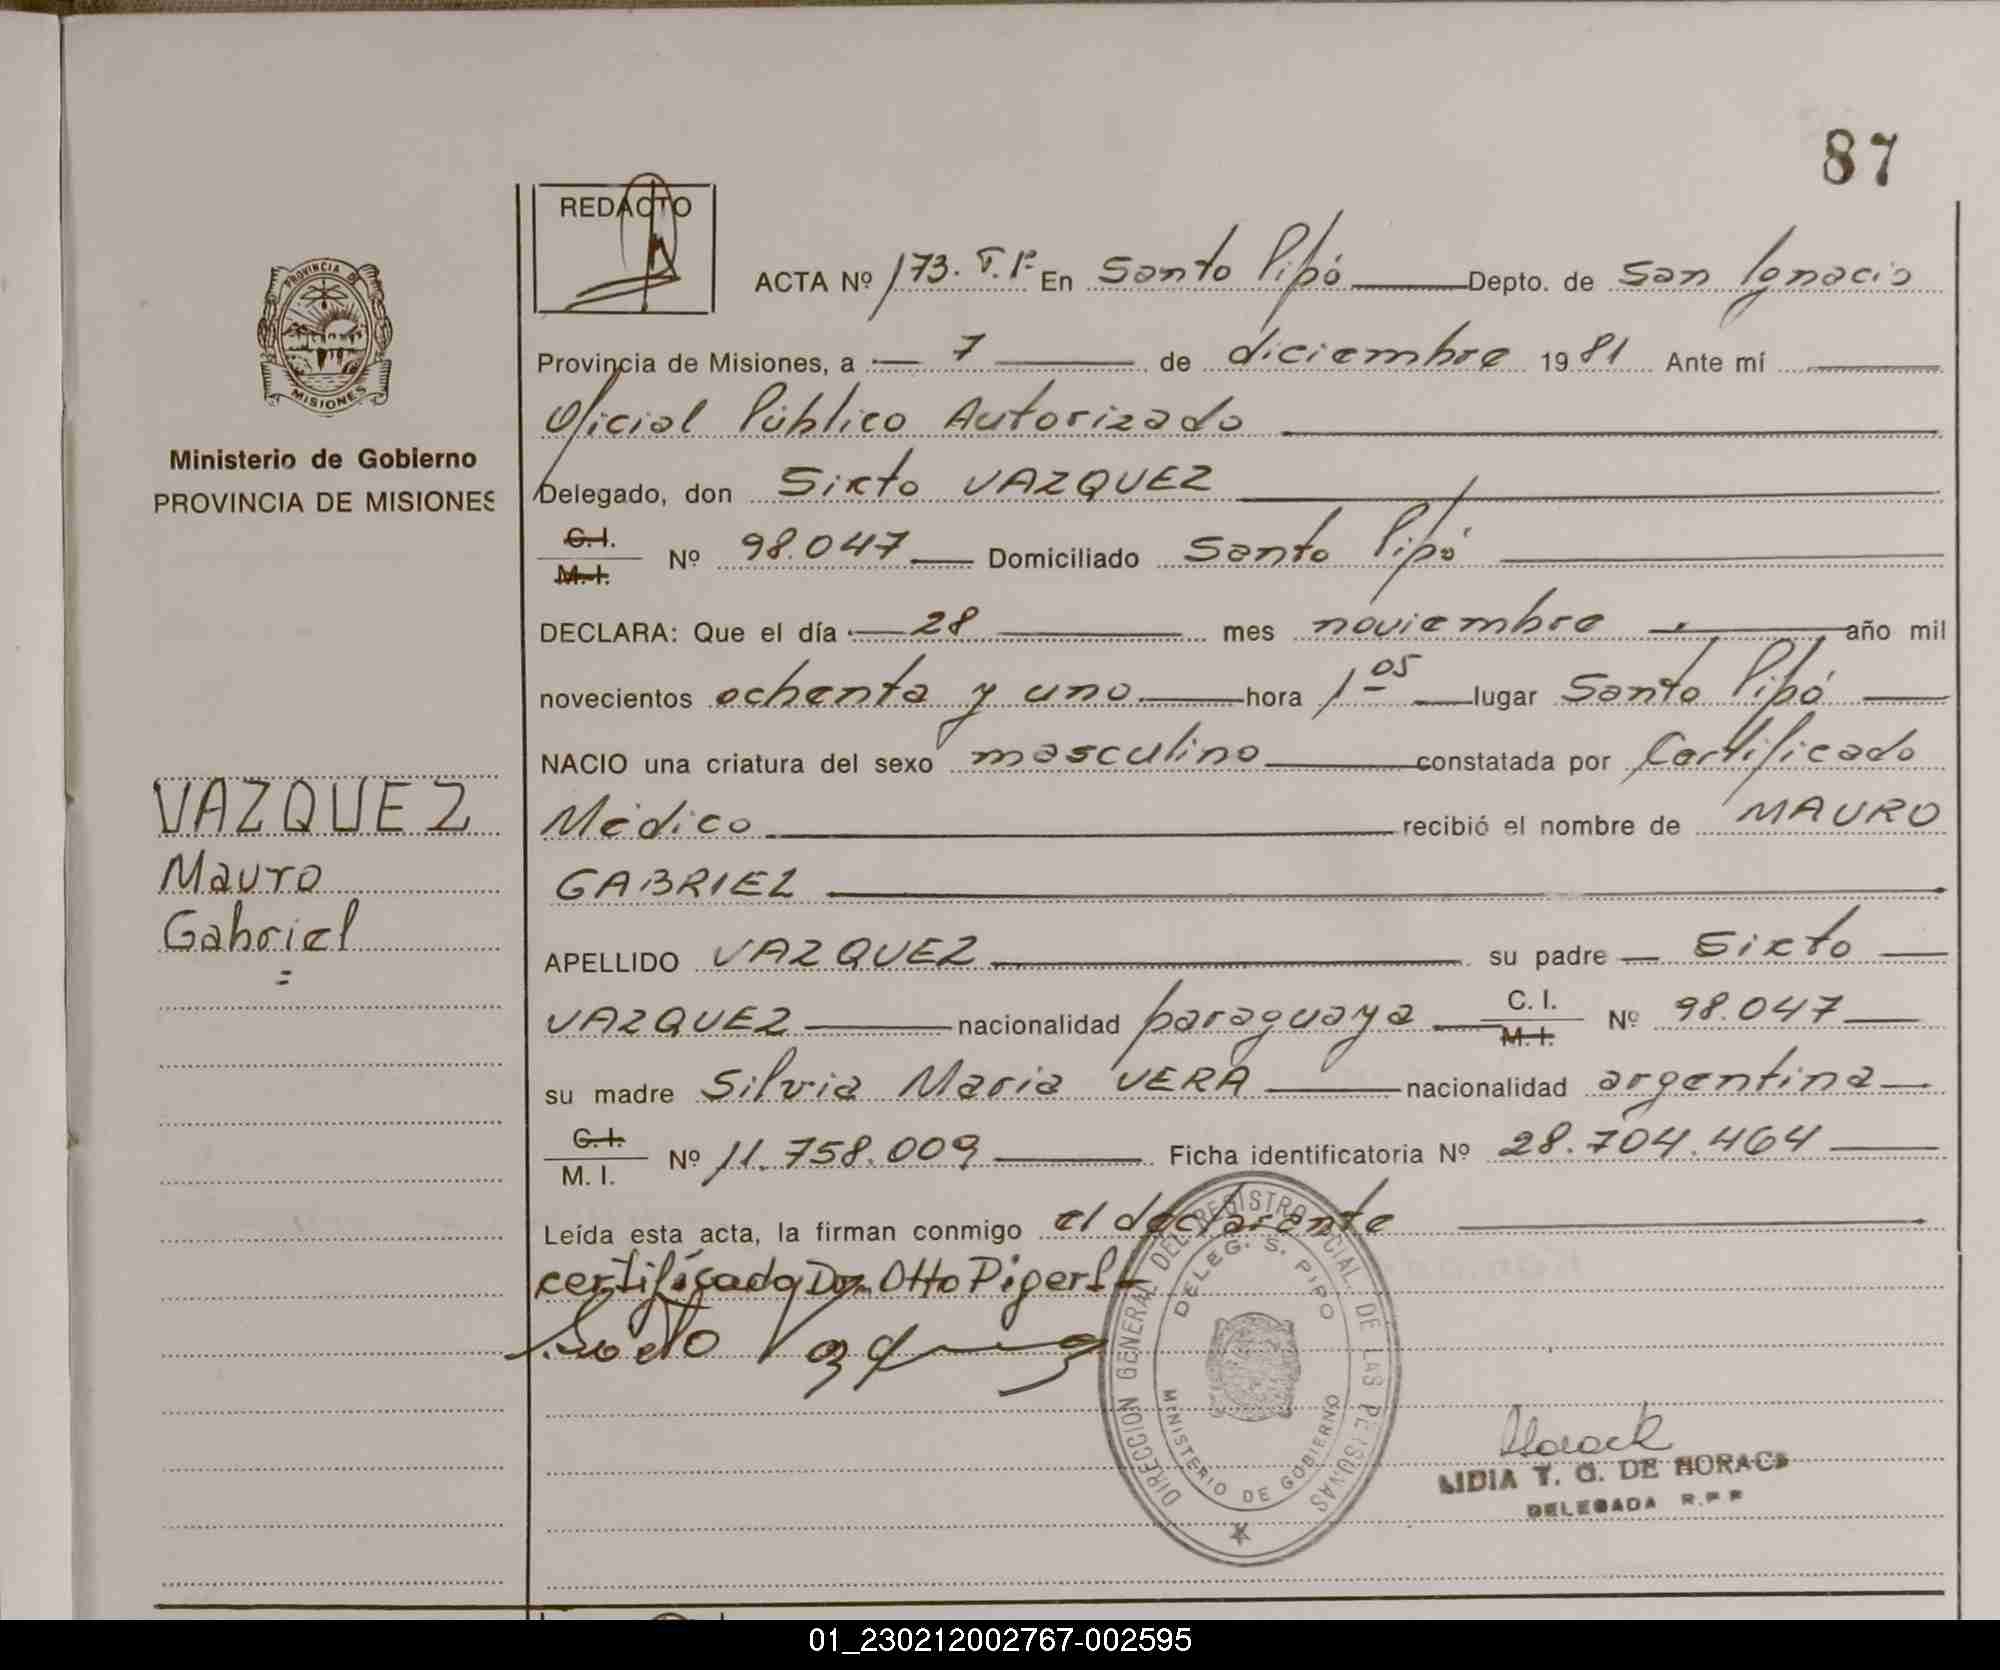 87
REDACTO
PROVINCIA DE
MISIONES
Ministerio de Gobierno
PROVINCIA DE MISIONES
VAZQUEZ
Mauro
Gabriel
=
ACTA Nº 173. T. 1º En Santo Pipó Depto. de San Ignacio
Provincia de Misiones, a 7 de diciembre 1981 Ante mí
Oficial Público Autorizado
Delegado, don Sixto VAZQUEZ
C.I.
M.I. Nº 98.047 Domiciliado Santo Pipó
DECLARA: Que el día 28 mes noviembre año mil
novecientos ochenta y uno hora 1 05 lugar Santo Pipó
NACIO una criatura del sexo masculino constatada por Certificado
Médico recibió el nombre de MAURO
GABRIEL
APELLIDO VAZQUEZ su padre Sixto
VAZQUEZ nacionalidad paraguaya C.I. M.I. Nº 98.047
su madre Silvia Maria VERA nacionalidad argentina
C.I.
M.I. Nº 11.758.009 Ficha identificatoria Nº 28.704.464
Leída esta acta, la firman conmigo el declarante
certificado Dr. Otto Pigerl
Sixto Vazquez
DIRECCION GENERAL DEL REGISTRO PCIAL. DE LAS PERSONAS
DELEG. S. PIPO
MINISTERIO DE GOBIERNO
Horack
LIDIA T. G. DE HORACK
DELEGADA R.P.P
01_230212002767-002595